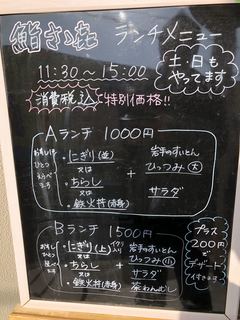 ランチメニュー
土・日も
やってます
11:30〜15:00
消費税込 特別価格!!
Aランチ 1000円
・にぎり(並)
又は
・ちらし
又は
・鉄火丼(赤身)
+
岩手のすいとん
ひっつみ(大)
+
サラダ
Bランチ 1500円
・にぎり(上)
又は
・ちらし
又は
・鉄火丼(赤身)
+
岩手のすいとん
ひっつみ(小)
+
サラダ
+
茶わんむし
プラス
200円
で
デザート